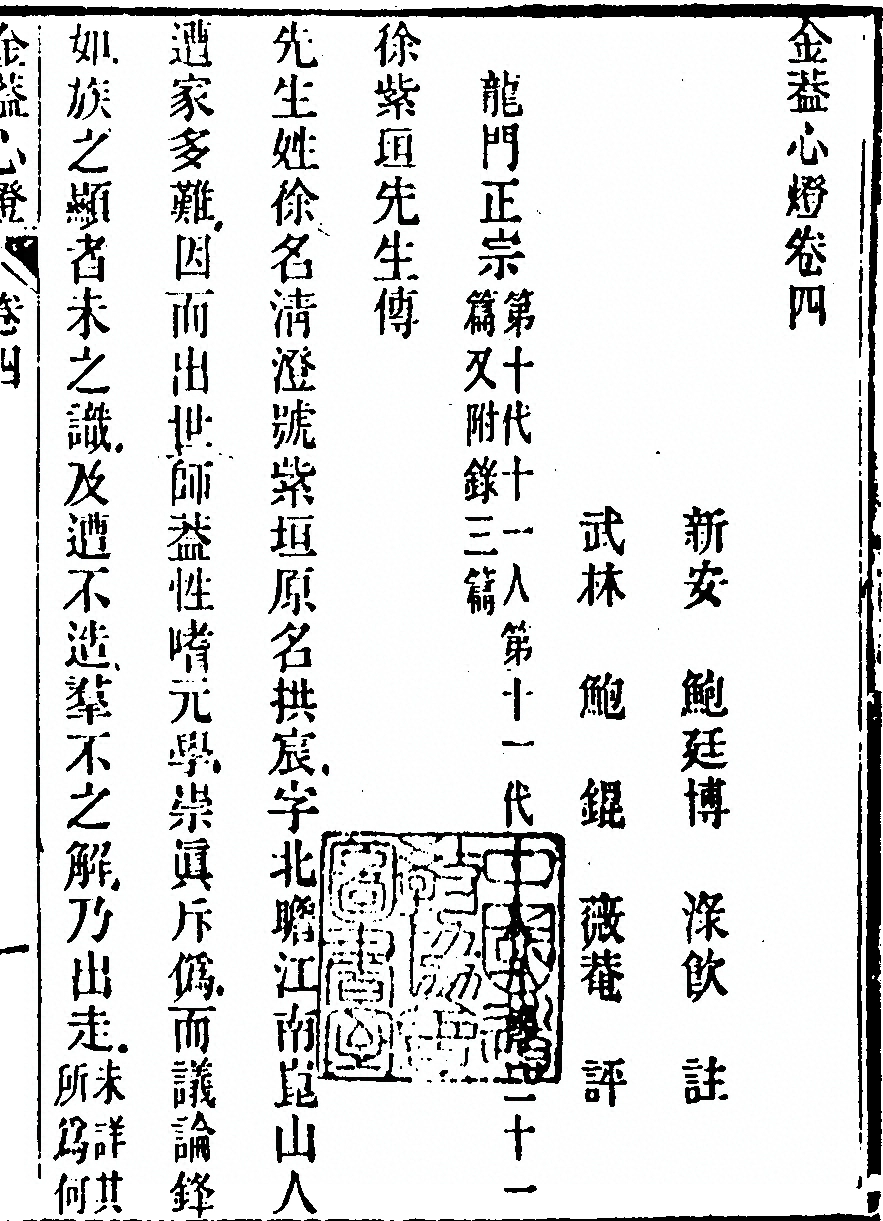 金葢心燈卷四
新安 鮑廷博 淥飮 註
武林 鮑 錕 薇菴 評
龍門正宗
第十代十一人第十一代十人共二十一
篇又附錄三篇
徐紫垣先生傳
先生姓徐名淸澄號紫垣原名拱宸字北瞻江南崑山人
遭家多難因而出世師葢性嗜元學崇眞斥僞而議論鋒
如族之顯者未之識及遭不造羣不之解乃出走
未詳其
所爲何
金葢心燈
卷四